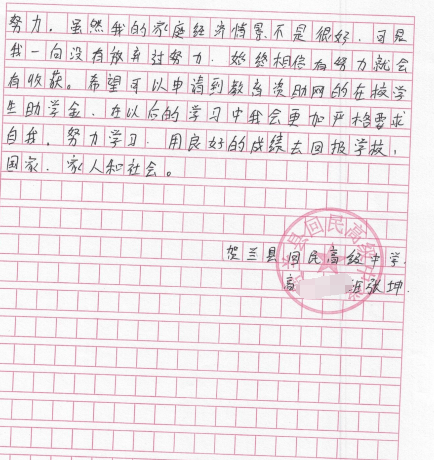 努力。虽然我的家庭经济情景不是很好，可是
我一向没有放弃过努力，始终相信有努力就会
有收获。希望可以申请到教育资助网的在校学
生助学金，在以后的学习中我会更加严格要求
自我，努力学习，用良好的成绩去回报学校，
国家，家人和社会。
贺兰县回民高级中学
高 班张坤